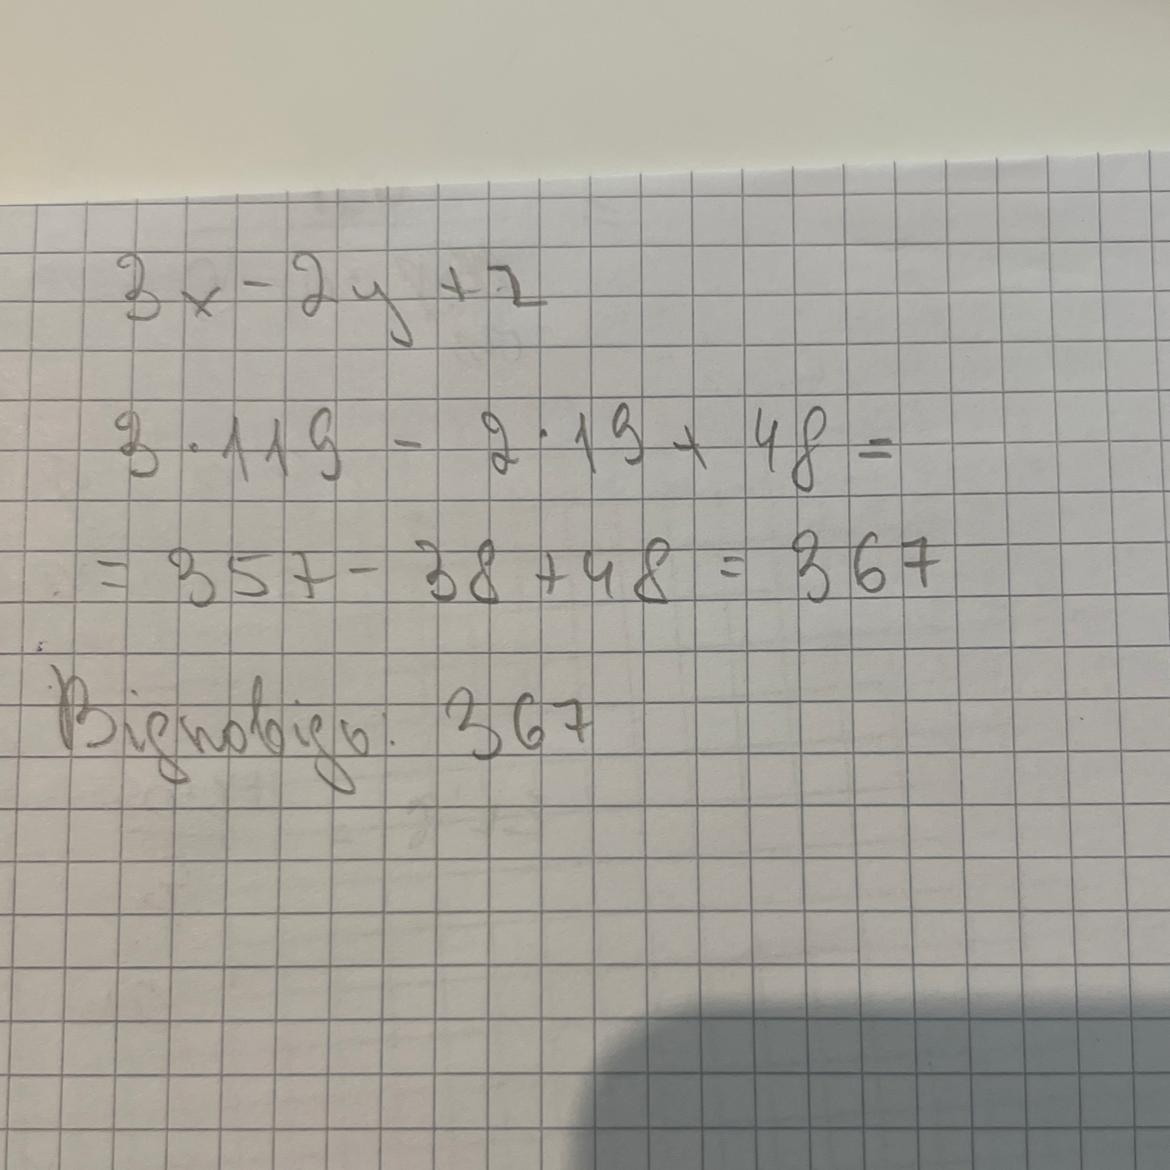 3x - 2y + z
3 · 119 - 2 · 19 + 48 =
= 357 - 38 + 48 = 367
Відповідь: 367